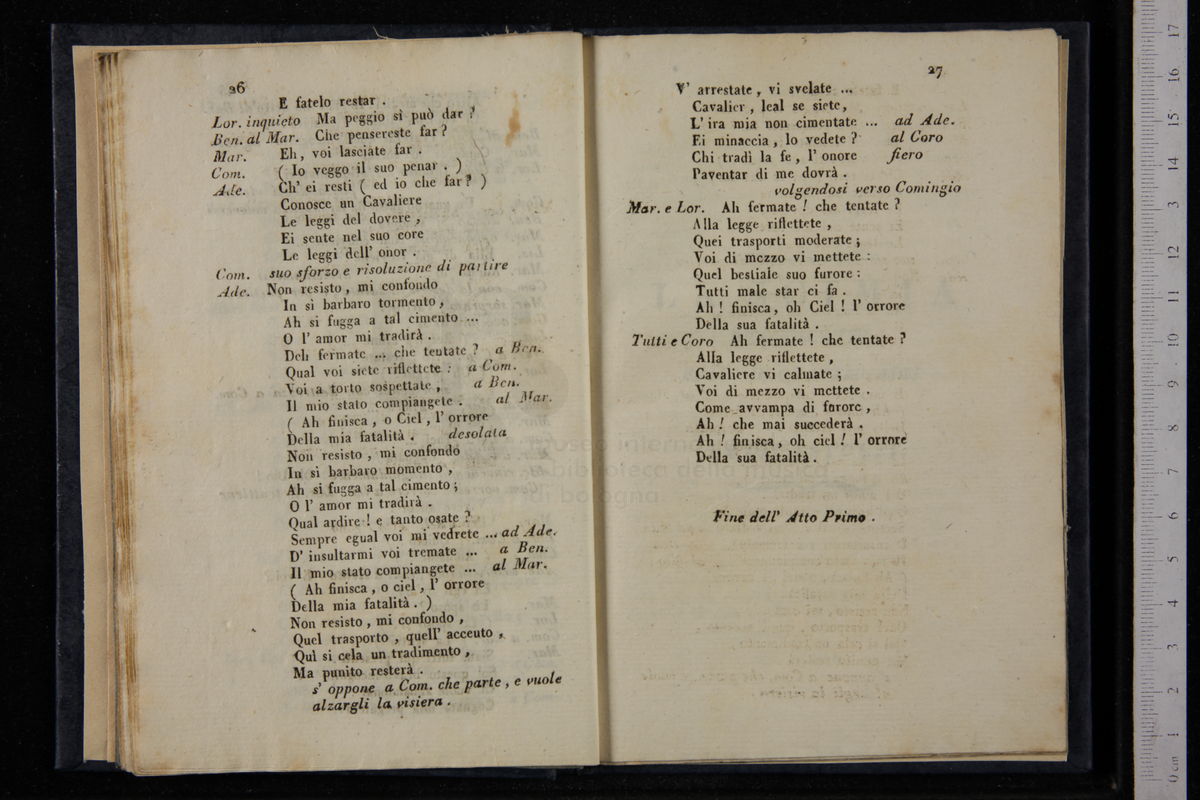 26
E fatelo restar .
Lor. inquieto Ma peggio sì può dar ?
Ben. al Mar. Che pensereste far ?
Mar. Eh, voi lasciate far .
Com. ( Io veggo il suo penar . )
Ade. Ch' ei resti ( ed io che far ? )
Conosce un Cavaliere
Le leggi del dovere ,
Ei sente nel suo core
Le leggi dell' onor .
Com. suo sforzo e risoluzione di partire
Ade. Non resisto , mi confondo
In sì barbaro tormento ,
Ah si fugga a tal cimento ...
O l' amor mi tradirà .
Deh fermate ... che tentate ? a Ben.
Qual voi siete riflettete : a Com.
Voi a torto sospettate , a Ben.
Il mio stato compiangete . al Mar.
( Ah finisca , o Ciel , l' orrore
Della mia fatalità . desolata
Non resisto , mi confondo
In sì barbaro momento ,
Ah si fugga a tal cimento ;
O l' amor mi tradirà .
Qual ardire ! e tanto osate ?
Sempre egual voi mi vedrete ... ad Ade.
D' insultarmi voi tremate ... a Ben.
Il mio stato compiangete ... al Mar.
( Ah finisca , o ciel , l' orrore
Della mia fatalità . )
Non resisto , mi confondo ,
Quel trasporto , quell' accento ,
Quì si cela un tradimento ,
Ma punito resterà .
s' oppone a Com. che parte , e vuole
alzargli la visiera .
27
V' arrestate , vi svelate ...
Cavalier , leal se siete,
L' ira mia non cimentate ... ad Ade.
Ei minaccia , lo vedete ? al Coro
Chi tradì la fe , l' onore fiero
Paventar di me dovrà .
volgendosi verso Comingio
Mar. e Lor. Ah fermate ! che tentate ?
Alla legge riflettete ,
Quei trasporti moderate ;
Voi di mezzo vi mettete :
Quel bestiale suo furore :
Tutti male star ci fa .
Ah ! finisca, oh Ciel ! l' orrore
Della sua fatalità .
Tutti e Coro Ah fermate ! che tentate ?
Alla legge riflettete ,
Cavaliere vi calmate ;
Voi di mezzo vi mettete .
Come avvampa di furore ,
Ah ! che mai succederà .
Ah ! finisca , oh ciel ! l' orrore
Della sua fatalità .
Fine dell' Atto Primo .